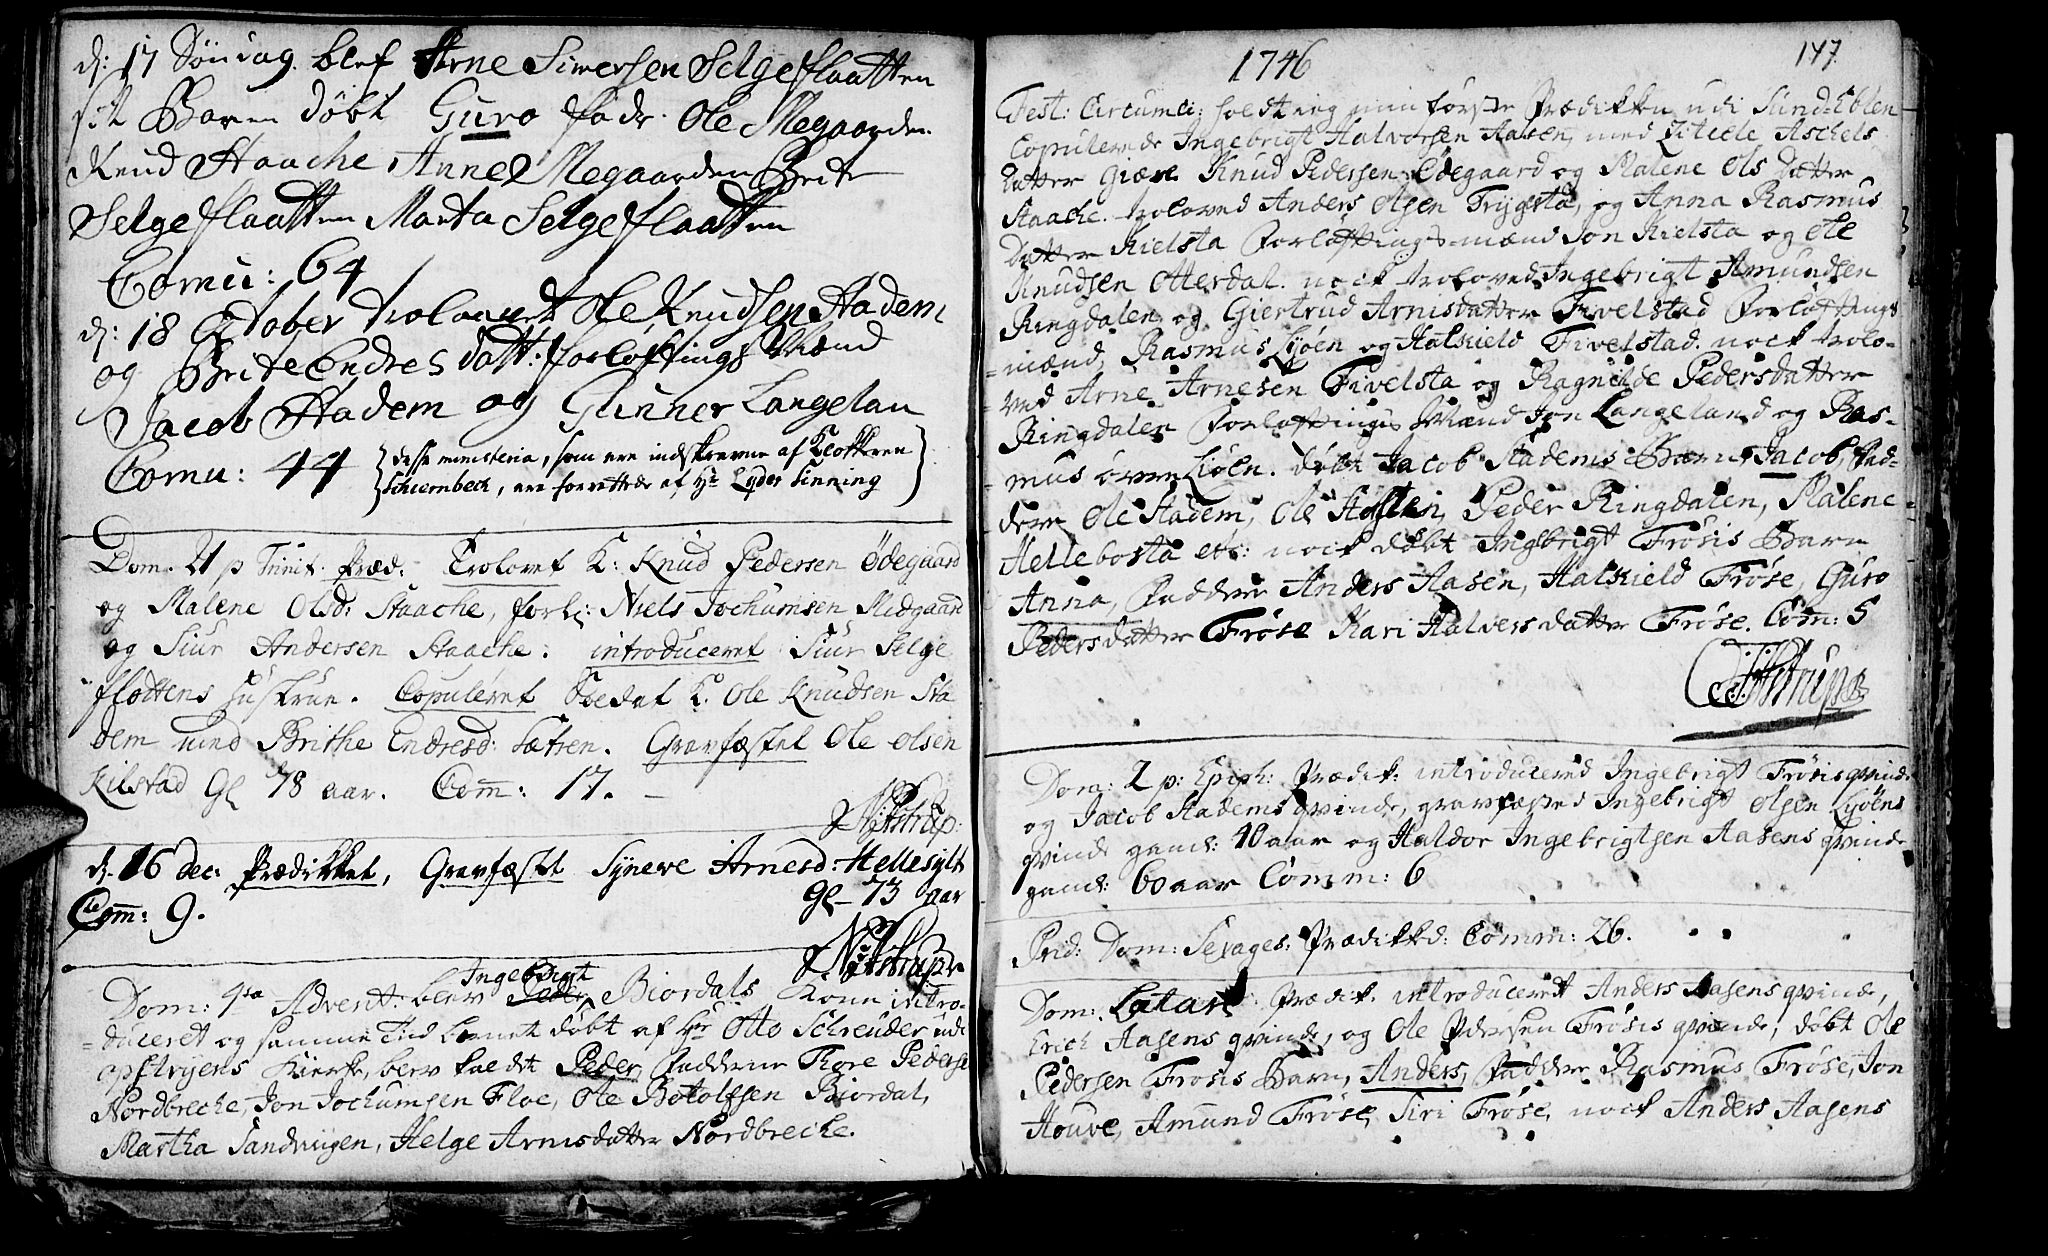 d: 17 Söndag blef Arne Simersen Selgeflaatten
sit Baren döbt Guro fadr. Ole Megaarden
Knud Staache Anne Megaarden Brite
Selgeflaatten Marta Selgeflaatten
Comu: 64
d: 18 October trolovet Ole Knudsen Stadem
og Brite Endres datt: forlöftings Mænd
Jacob Stadem og Gunner Langelan
Comu: 44
desse ministeria, som ere indskrevne af Klokkeren
Schiernbeck, ere forrettede af Hr Lyder Finning
Dom. 21 p Trinit. Præd: Troloret K: Knud Pedersen Ödegaard
og Malene Olsd: Staache, forl: Niels Jochumsen Midgaard
og Siur Andersen Staache: introduceret Siur Selge
flottens Hustrue. Copuleret K. Ole Knudsen Sta
dem med Brithe Endresd: Sætren. Gravfæstet Ole Olsen
Kilstad Gl 78 aar. Com: 17. –
d. 16 dec: Prædikket, Gravfæstet Synneve Arnesd: Hellesylt
Gl – 73 aar
Com: 9.
Ingebrigt
Dom: 1ma Advent: blev Peder Biordals Kone intro-
duceret og samme Tid barnet döbt af Hr Otto Schreuder udi
opstryens Kierke, blev kaldet Peder, Faddere Tore Peders
Nordbreche, Jon Jochumsen Floe, Ole Botolfsen Biordal,
Martha Sandvigen, Helge Arnisdatter Nordbreche.
1746
147
Fest: Circumci: holdt ieg min förste Prædikken udi Sund-Eblen
Copulerede Ingebrigt Halvorsen Aasen, med Aschels
datter Giære Knud Pedersen Ödegaard og Malene Ols datter
Staache. troloved Anders Olsen Tryggsta, og Anna Rasmus
Datter Kielsta Forlöftings-mænd Jon Kielsta og Ole
Knudsen Otterdal. nock troloved Ingebrigt Amundsen
Ringdalen og Giertrud Arnisdatter Fivelstad Forlöftings
-mænd, Rasmus Liöen og Halskield Fivelstad. nock trolo-
ved Arne Arnesen Fivelsta og Ragnilde Pedersdatter
Ringdalen Forlöftings Mænd Jon Langeland og Ras-
mus övre Liöen. döbt Jacob Stadems Barn, Jacob, Fad-
dere Ole Stadem, Ole Peder Ringdalen, Malene
Hellebosta etc: nock döbt Ingebrigt Frösis Barn
Anna, Faddere Anders Aasen, Halskield Fröse, Guro
Pedersdatter Fröse Kari Halvers datter Fröse. Com: 5
Dom: 2 p: Epiph: Prædik: introducered Ingebrigt Frösis qvinde
og Jacob Stadems qvinde, gravfæsted Ingebrigt Olsen Liöens
qvinde gaml: 40 aar og Haldor Ingebrigtsen Aasens qvinde
gaml: 60 aar Comm: 6
Dom: Sexages: Prædikkd: Comm: 26.
Dom: Lætare: Prædik: introduceret Anders Aasens qvinde,
Erich Aasens qvinde, og Ole Pedersen Frösis qvinde, döbt Ole
Pedersen Frosis Barn, Anders, Faddere Rasmus Fröse, Jon
Houve, Amund Fröse, Siri Fröse, nock Anders Aasens